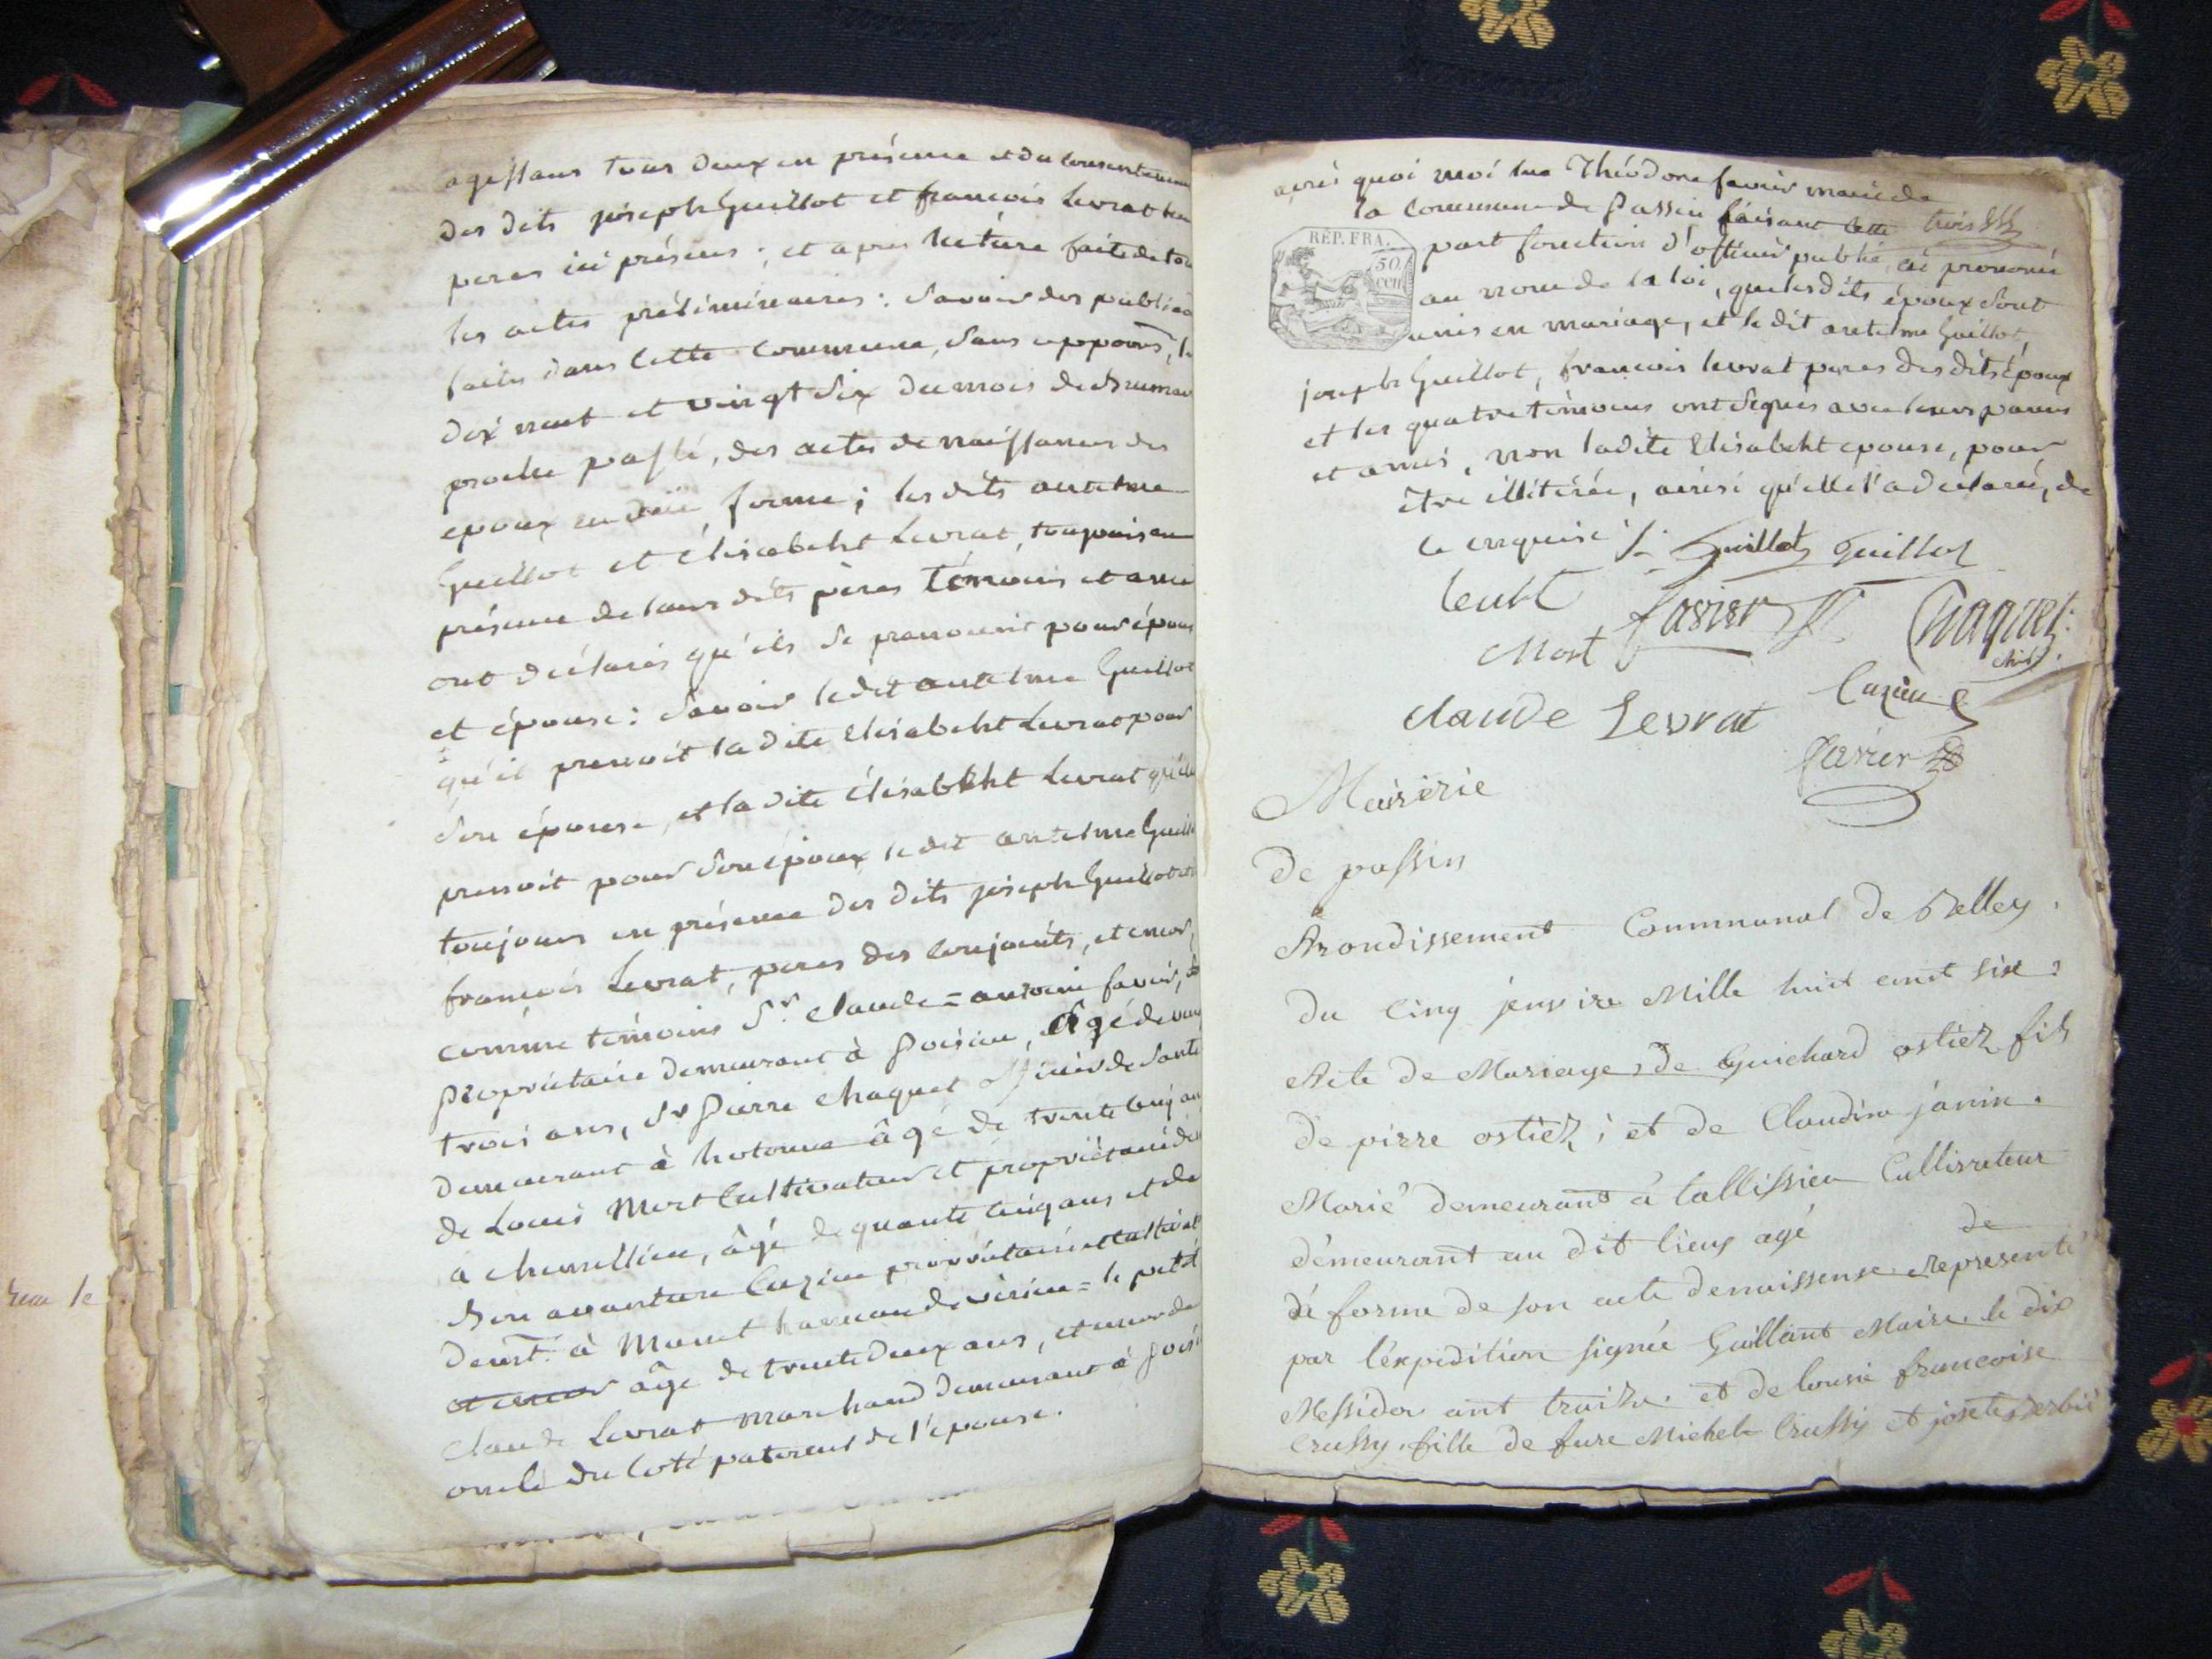 agissans tous deux en présence et du consentement
des dits joseph Guillot et françois Levrat
peres ici présens ; et apres lecture faite de
les actes préliminaires : savoir des
faites dans cette commune, sans
dix neut et vingt six du mois de
proche passé, des actes de naissances des
epoux en forme ; les dits antelme
Guillot et Elisabeht Levrat, toujours en
présence de leurs dits pères témoins et
ont déclarés qu'ils se pour
et épouse : savoir le dit antelme Guillot
qu'il prenoit la dite Elisabeht Levrat pour
son épouse, et la dite Elisabeht Levrat
prenoit pour son époux le dit antelme
toujours en présence des dits joseph Guillot
françois Levrat, peres des conjoints, et
comme témoins Sr. claude = antoine favier,
propriétaire demeurant à Poisieu, âgé de
trois ans, Sr Pierre Chaquet officier de santé
demeurant à hotonne âgé de trente cinq
de Louis Mort Cultivateur et propriétaire
à chemillieu, âgé de quante cinq ans et de
Bon avanture Cuzieu propriétaire
à hameau de virieu = le petit
et encor âge de trente deux ans, et encor de
claude Levrat marchand demeurant à
oncle du coté paternel de l'épouse.
après quoi moi Théodore favier maire de
la commune de Passin faisant cette
part fonction d'officier public ai prononcé
au nom de la loi, que les dits époux sont
unis en mariage, et le dit antelme Guillot,
joseph Guillot, françois levrat peres des dits époux
et les quatre témoins ont signés avec leurs parens
et amis, non la dite Elisabeht epouse, pour
être illitérée, ainsi qu'elle l'a déclaré, de
ce enquise ./. Guillot Guillot
REP. FRA.
50
cen
favier Chaquet
Mort
claude Levrat Cuzieu
favier
Mairerie
de passin
Arondissement Communal de Belley.
du cinq jenvire Mille huit cent six.
Acte de Mariage, de Guichard ostiez fils
de pirre ostiez ; et de Claudine janin.
Marié demeurant à tallissieu
démeurant au dit lieux agé de
dé forme de son acte denaissense represente
par l'expedition signée Gaillant Maire. le dix
Messidor ant traize. et de françoise
Crussy. fille de fure Michel Crussy et